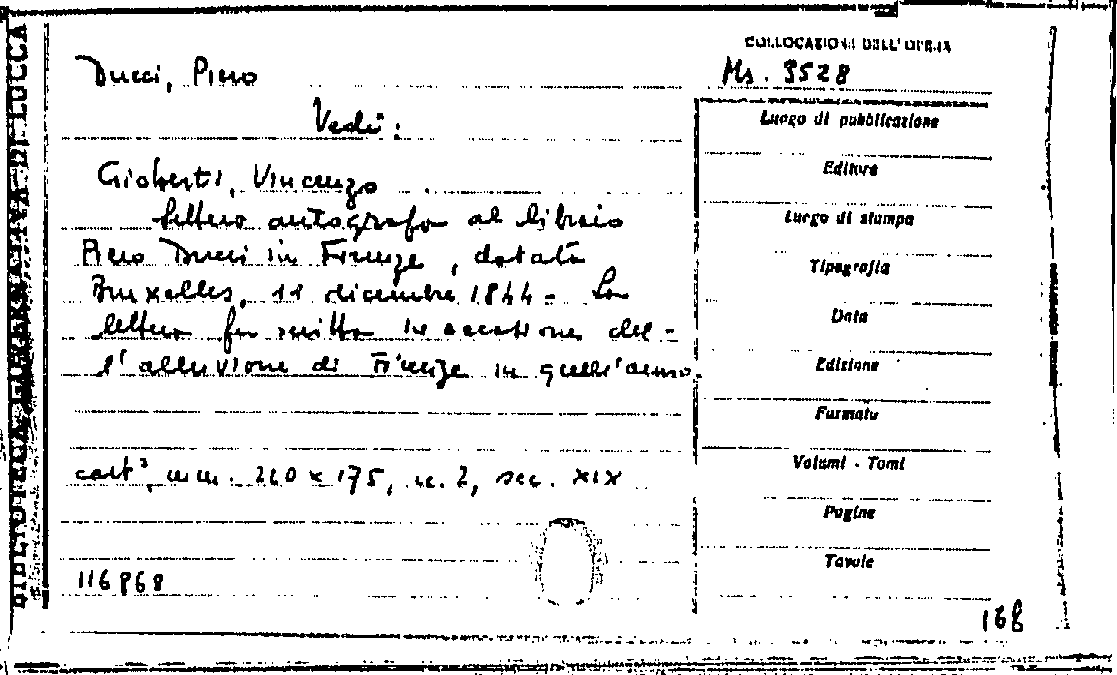 BIBLIOTECA GOVERNATIVA DI LUCCA
COLLOCAZIONE DELL'OPERA
Ms. 3528
Ducci, Piero
Vedi:
Gioberti, Vincenzo
lettera autografa al libraio
Piero Ducci in Firenze, datata
Bruxelles, 11 dicembre 1844 - La
lettera fu scritta in occasione del-
l'alluvione di Firenze in quell'anno.
cart², mm. 210 x 175, cc. 2, sec. XIX
116868
Luogo di pubblicazione
Editore
Luogo di stampa
Tipografia
Data
Edizione
Formato
Volumi - Tomi
Pagine
Tavole
168